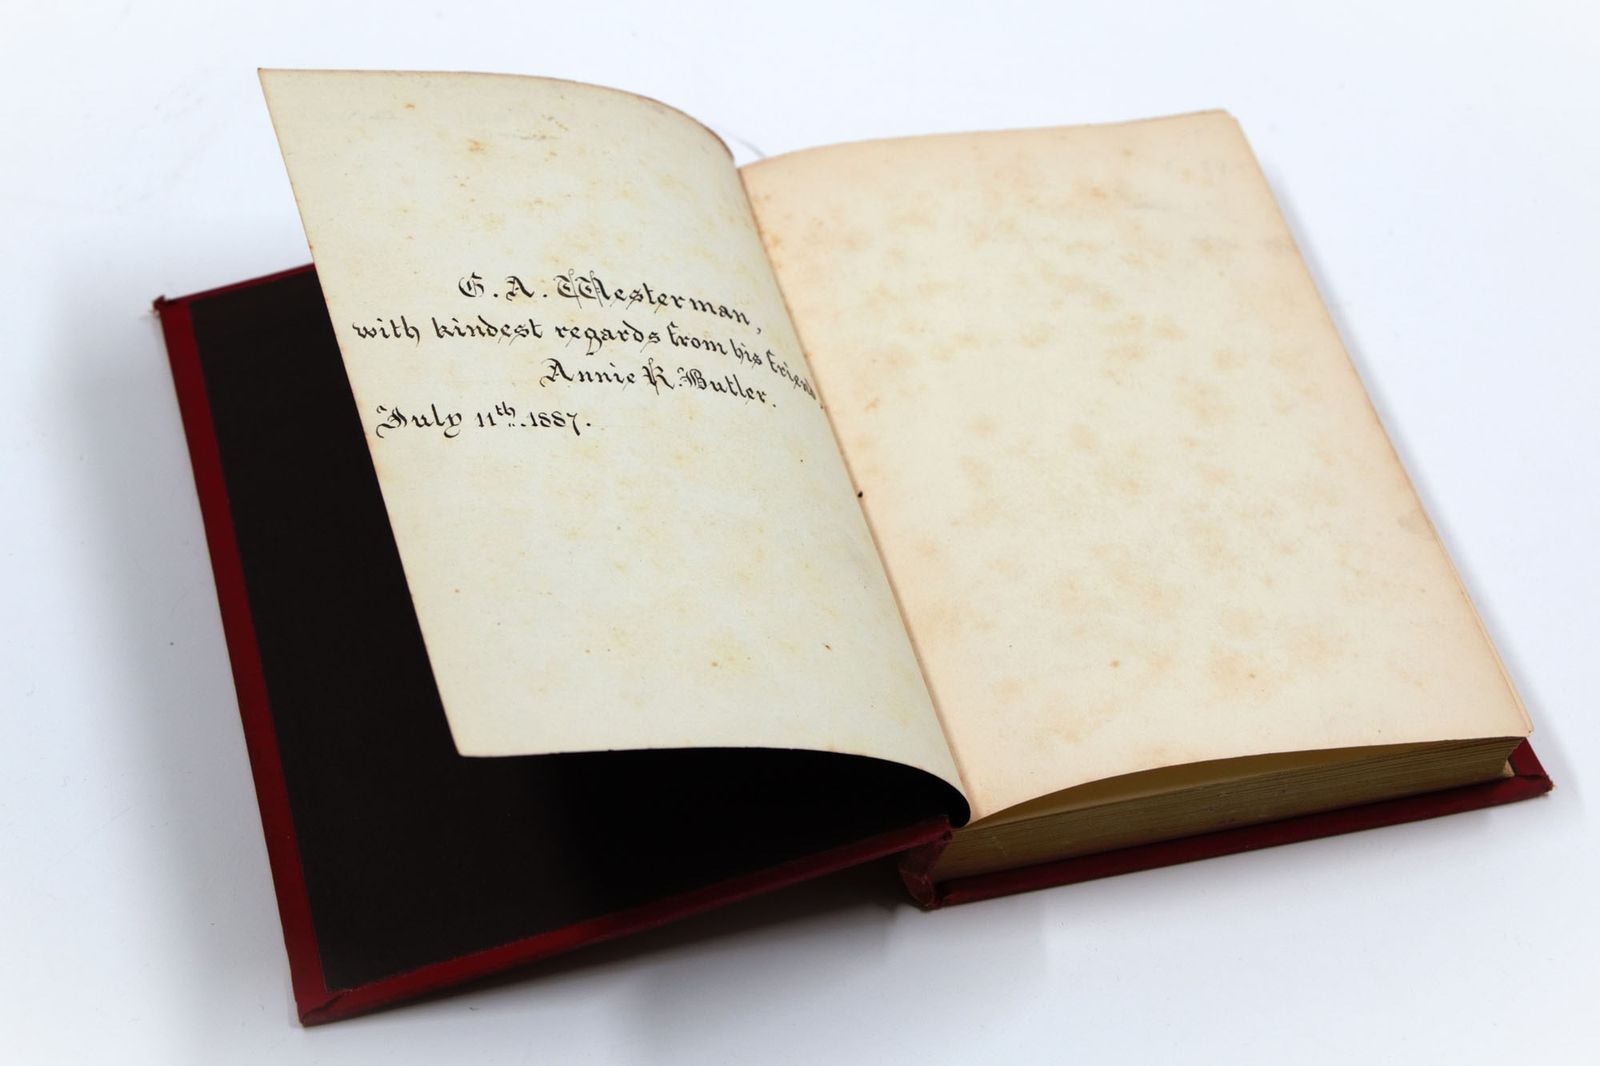 G. A. Westerman,
with kindest regards from his friend,
Annie R. Butler.
July 11th. 1887.